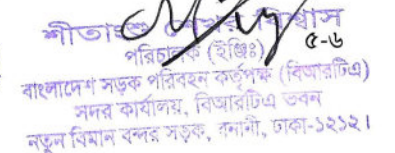 শীতাংশু শেখর বিশ্বাস
৫-৬
পরিচালক (ইঞ্জিঃ)
বাংলাদেশ সড়ক পরিবহন কর্তৃপক্ষ (বিআরটিএ)
সদর কার্যালয়, বিআরটিএ ভবন
নতুন বিমান বন্দর সড়ক, বনানী, ঢাকা-১২১২।